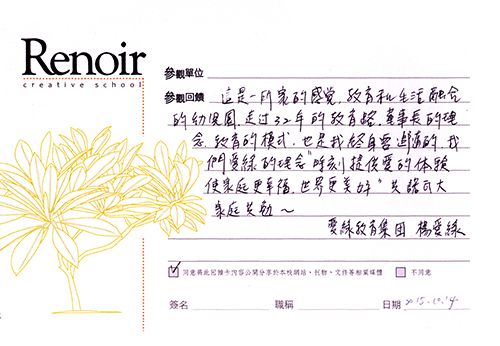 Renoir
creative school
參觀單位
參觀回饋 這是一所家的感覺,教育和生活融合
的幼兒園,走過32年的教育路,董事長的理
念,教育的模式,也是我終身要追隨的,我
們愛綠的理念"時刻提供愛的体驗
使家庭更幸福,世界更美好"
家庭共勉~
愛綠教育集团 楊愛綠
同意將此回饋卡內容公開分享於本校網站、刊物、文件等相關媒體 不同意
簽名 職稱 日期